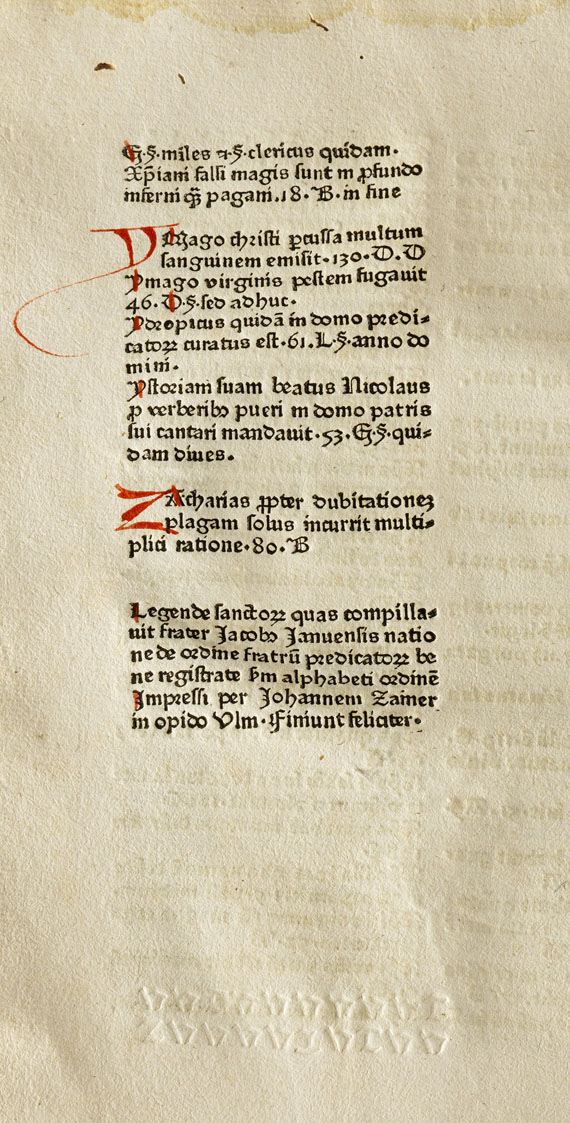 G·§·miles ⁊·§·clericus quidam·
Xp̄iani falsi magis sunt in ꝓfundo
inferni q̄ꝫ pagani.18·B·in fine
YMago christi ꝑcussa multum
sanguinem emisit·130·D·D
Ymago virginis pestem fugavit
46·D·§·sed adhuc·
Ydropicus quidā in domo predi⸗
catoꝝ curatus est·61·L·§·anno do
mini·
Ystoriam suam beatus Nicolaus
ꝓ verberibꝰ pueri in domo patris
sui cantari mandauit·53·G·§·qui⸗
dam diues.
ZAcharias ꝓpter dubitationeꝫ
plagam solus incurrit multi⸗
plici ratione·80·B
Legende sanctoꝝ quas compilla⸗
uit frater Jacobꝰ Januensis natio
ne de ordine fratrū predicatoꝝ be
ne registrate ẜm alphabeti ordinē
Impressi per Johannem Zainer
in opido Vlm·Finiunt feliciter·